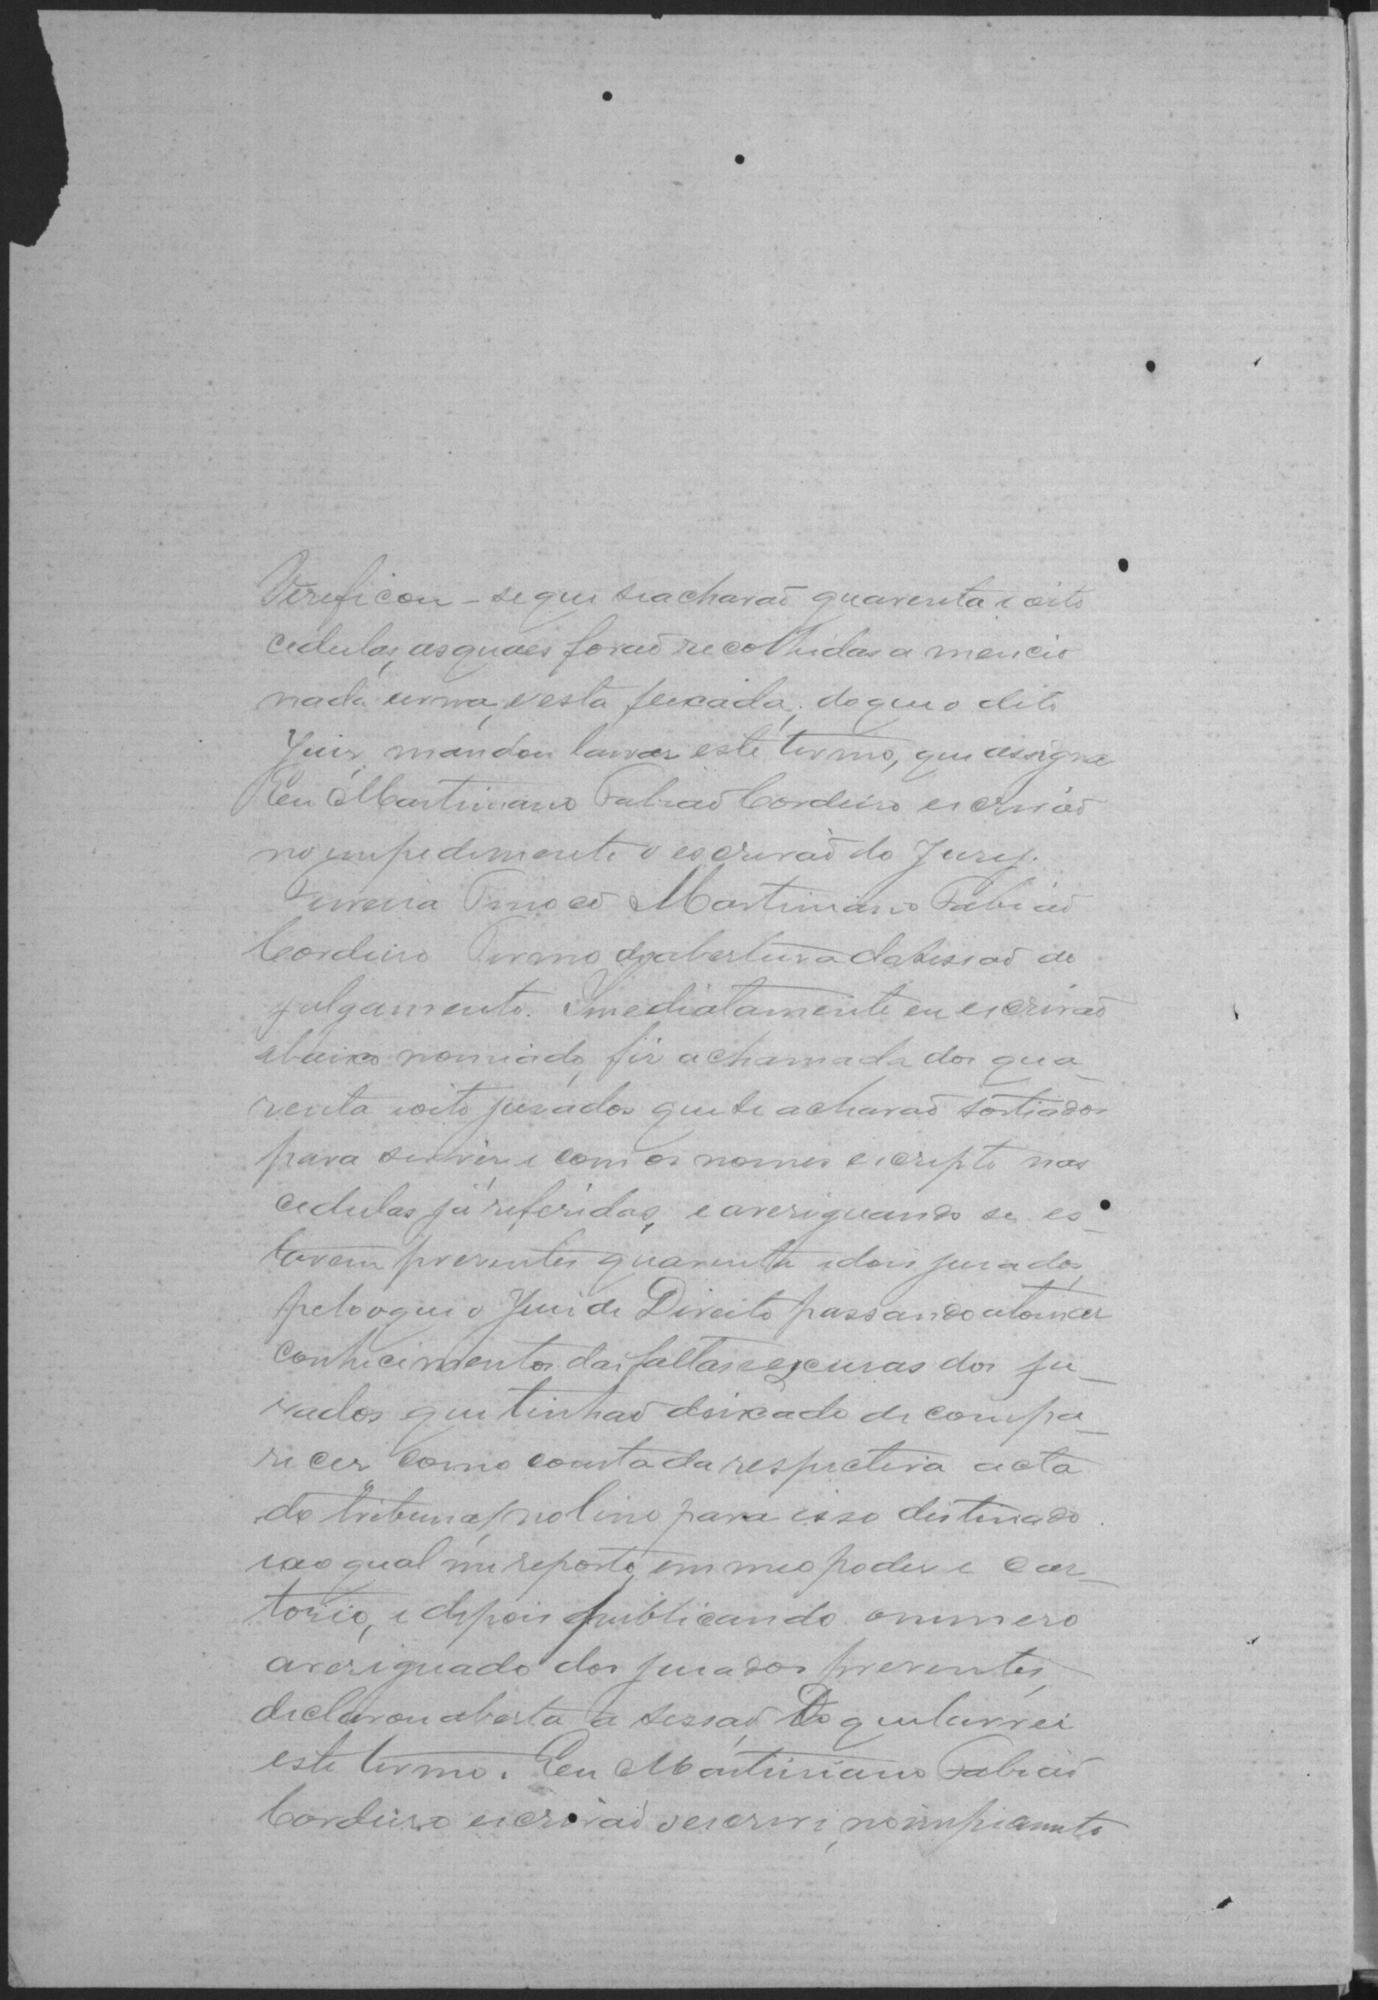 Verificou-se que se acharaõ quarenta e oito
cedulas, as quaes foraõ recolhidas a mencio
nada urna, e esta feixada; do que o dito
Juis mandou lavrar este termo, que assigna
Eu Martiniano Fabiaõ Cordeiro escrivaõ
no impedimento o escrivaõ do Jury.
Ferreira Tinoco Martiniano Fabiaõ
Cordeiro Termo de abertura da sessaõ de
julgamento. Immediatamente eu escrivaõ
abaixo nomiado, fiz a chamada dos qua_
renta e oito jurados que se acharaõ sortiados
para servir e com os nomes escripto nas
cedulas já referidas, e averiguando se es_
tarem presentes quarenta e dois jurados,
pelo o que o Juis de Direito passando a tomar
conhecimentos das faltas e escusas dos ju_
rados que tinhaõ deixado de compa_
recer como consta da respectiva acta
do tribunal, no livro para isso destinado
e ao qual me reporto, em meo poder e car_
torio, e depois publicando o numero
averiguado dos jurados presentes,
declarou aberta a sessaõ, Do que lavrei
este termo. Eu Martiniano Fabiaõ
Cordeiro escrivaõ o escrevi, no impiamento